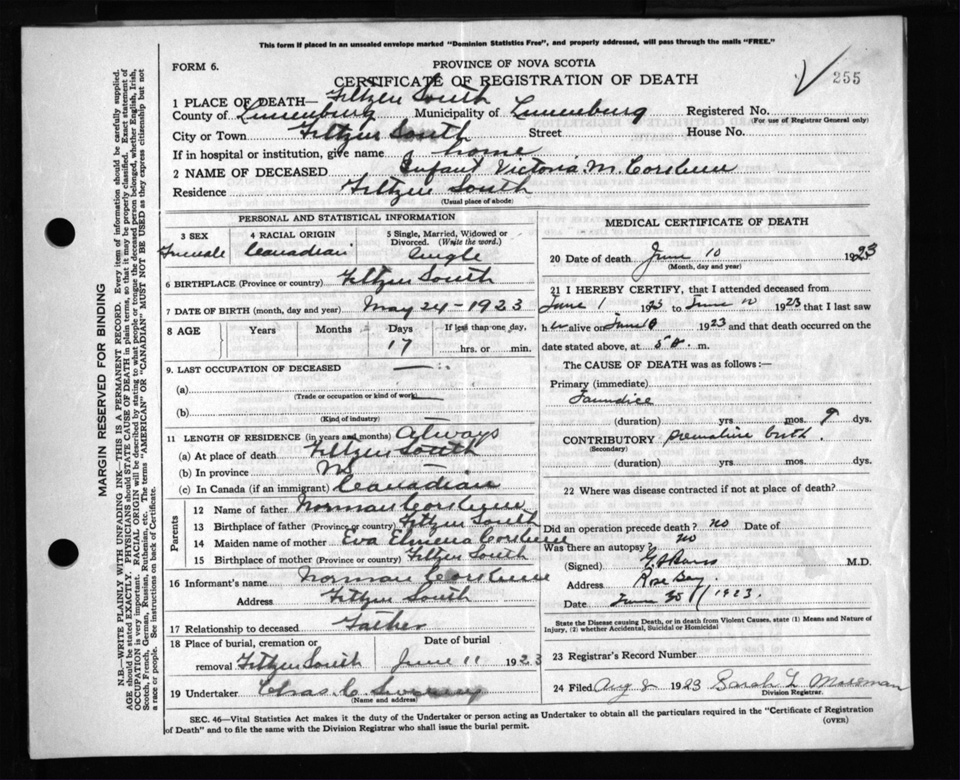 This form if placed in an unsealed envelope marked "Dominion Statistics Free", and properly addressed, will pass through the mails "FREE."
FORM 6.
PROVINCE OF NOVA SCOTIA
CERTIFICATE OF REGISTRATION OF DEATH
255
1 PLACE OF DEATH— Feltzen South
County of Lunenburg Municipality of Lunenburg Registered No.
(For use of Registrar General only)
City or Town Feltzen South Street House No.
If in hospital or institution, give name home
2 NAME OF DECEASED Infant Victoria M.
Residence Feltzen South
(Usual place of abode)
PERSONAL AND STATISTICAL INFORMATION
3 SEX Female
4 RACIAL ORIGIN Canadian
5 Single, Married, Widowed or Divorced. (Write the word.) Single
6 BIRTHPLACE (Province or country) Feltzen South
7 DATE OF BIRTH (month, day and year) May 24-1923
8 AGE Years Months Days If less than one day,
17 hrs. or min.
9. LAST OCCUPATION OF DECEASED —
(a)
(Trade or occupation or kind of work)
(b)
(Kind of industry)
11 LENGTH OF RESIDENCE (in years and months) Always
(a) At place of death Feltzen South
(b) In province NS
(c) In Canada (if an immigrant) Canadian
Parents
12 Name of father Norman
13 Birthplace of father (Province or country) Feltzen South
14 Maiden name of mother Eva
15 Birthplace of mother (Province or country) Feltzen South
16 Informant's name Norman
Address Feltzen South
17 Relationship to deceased Father
18 Place of burial, cremation or removal Feltzen South
Date of burial June 11 1923
19 Undertaker Chas. C.
(Name and address)
MEDICAL CERTIFICATE OF DEATH
20 Date of death June 10 1923
(Month, day and year)
21 I HEREBY CERTIFY, that I attended deceased from
June 1 1923 to June 1923 that I last saw
h er alive on June 1923 and that death occurred on
date stated above, at 5 a. m.
The CAUSE OF DEATH was as follows:—
Primary (immediate)
Jaundice
(duration) yrs. mos. 9 dys.
CONTRIBUTORY premature birth.
(Secondary)
(duration) yrs. mos. dys.
22 Where was disease contracted if not at place of death?
Did an operation precede death? no Date of
Was there an autopsy? no
(Signed) M.D.
Address Rose Bay.
Date June 30 / 1923.
State the Disease causing Death, or in death from Violent Causes, state (1) Means and Nature of
Injury, (2) whether Accidental, Suicidal or Homicidal
23 Registrar's Record Number
24 Filed Aug 2 1923 Sarah L
Division Registrar.
SEC. 46—Vital Statistics Act makes it the duty of the Undertaker or person acting as Undertaker to obtain all the particulars required in the "Certificate of Registration
of Death" and to file the same with the Division Registrar who shall issue the burial permit.
(OVER)
MARGIN RESERVED FOR BINDING
N.B.—WRITE PLAINLY WITH UNFADING INK—THIS IS A PERMANENT RECORD. Every item of information should be carefully supplied.
AGE should be stated EXACTLY. PHYSICIANS should STATE CAUSE OF DEATH in plain terms, so that it may be properly classified. Exact statement of
OCCUPATION is very important. RACIAL ORIGIN will be described by stating to what people or tongue the deceased person belonged, whether English, Irish,
Scotch, French, German, Russian, Ruthenian, etc. The terms "AMERICAN" OR "CANADIAN" MUST NOT BE USED as they express citizenship but not
a race or people. See instructions on back of Certificate.